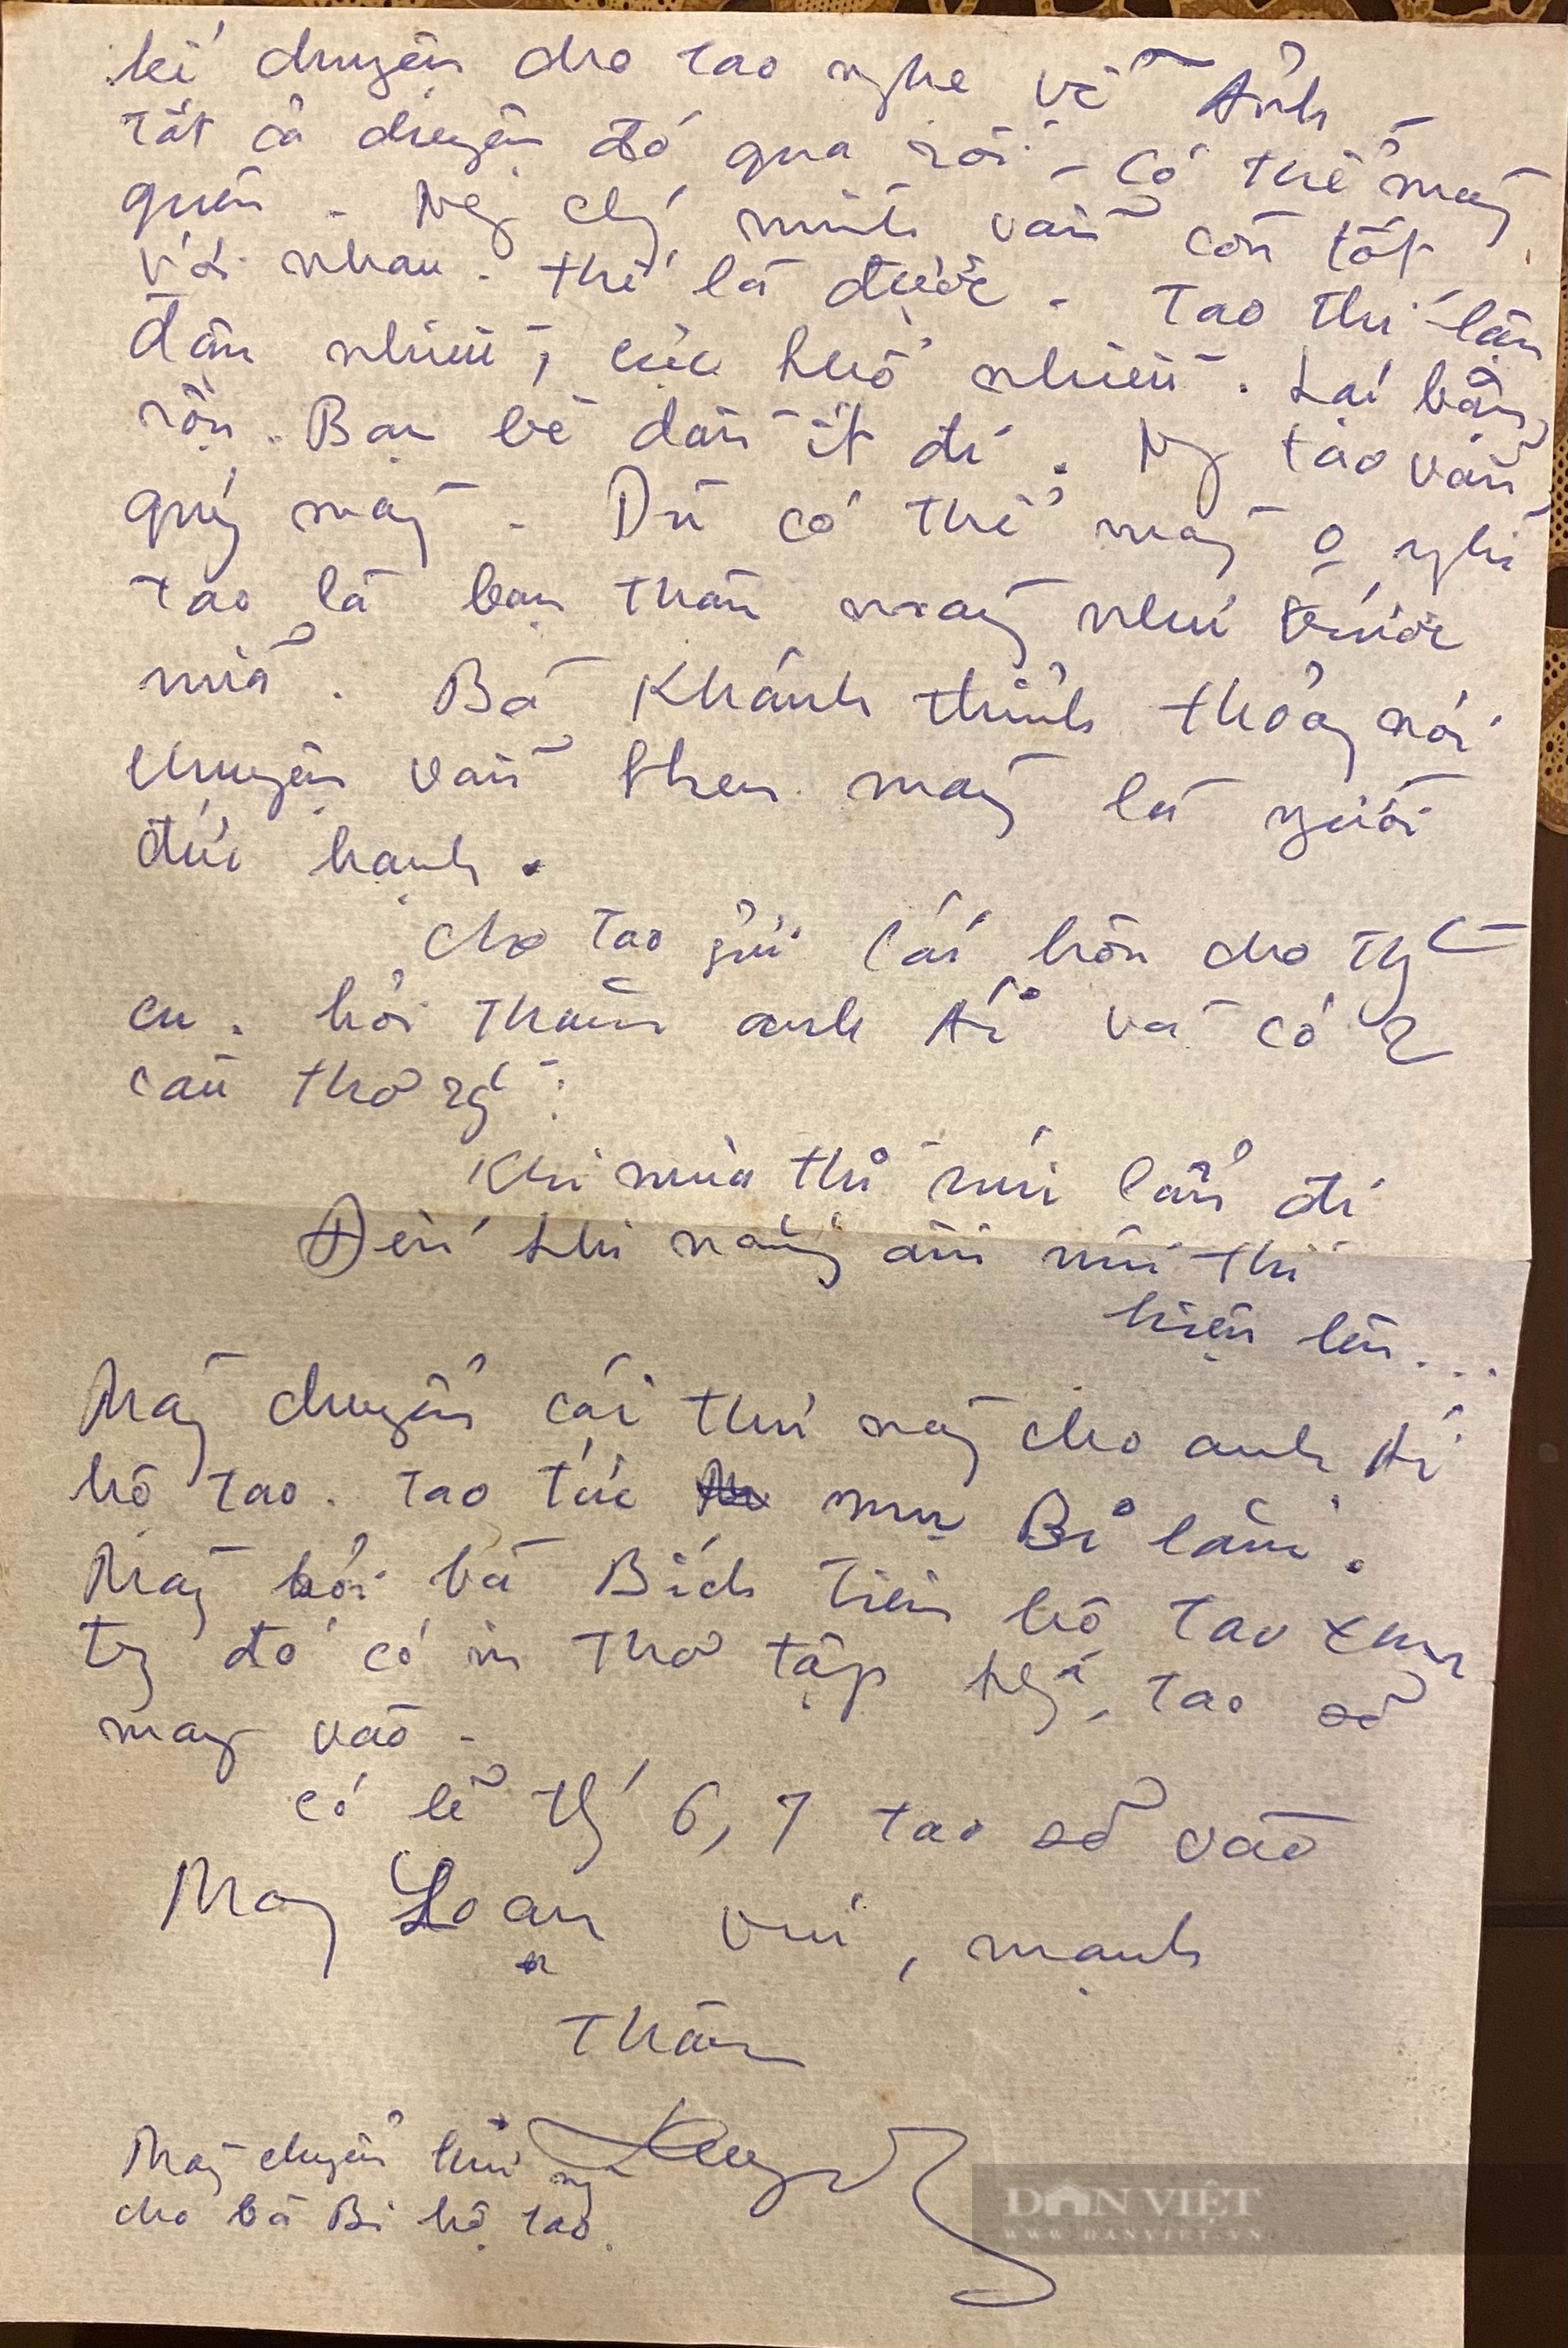 kể chuyện cho tao nghe về Ảnh –
Tất cả chuyện đó qua rồi – Có thể mày
quên – Ng chúng mình vẫn còn tốt
với nhau – thế là được – Tao thì lận
đận nhiều, cực khổ nhiều. Lại bận
rộn. Bạn bè dần ít đi. Ng tao vẫn
quý mày – Dù có thể mày o nghĩ
tao là bạn thân mày như trước
nữa. Bà Khánh thỉnh thoảng nói
chuyện vẫn khen mày là người
đức hạnh.
Cho tao gửi cái hôn cho
cu. hỏi thăm anh Ái và có 2
câu thơ rằng:
Khi mùa thu núi lẩn đi
Đến khi nắng ấm núi thì
hiện lên...
Mày chuyển cái thư này cho anh Ái
hộ tao. Tao tức mụ Bi lắm.
Mày hỏi bà Bích Tiên hộ tao xem
trong đó có in thơ tập không, tao sẽ
mang vào –
Có lẽ thg 6, 7 tao sẽ vào
Mong Loan vui, mạnh
Thân
Mày chuyển thư này
cho bà Bi hộ tao.
DÂN VIỆT
WWW.DANVIET.VN